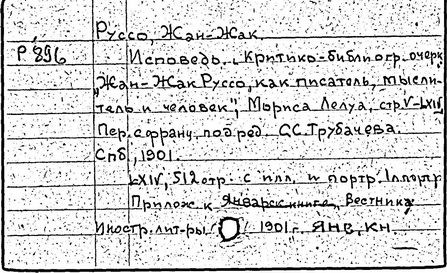 Руссо, Жан-Жак.
Р 896 Исповедь. Критико-библиогр. очерк
"Жан-Жак Руссо, как писатель, мысли-
тель и человек", Мориса Лелуа, стр. V-LXIV
Пер. с франц. под ред. С.С. Трубачева.
Спб, 1901.
LXIV, 512 стр. с илл. и портр. 1 л. портр.
Прилож. к Январск книге, Вестника
Иностр. лит-ры 1901 г. Янв. кн.